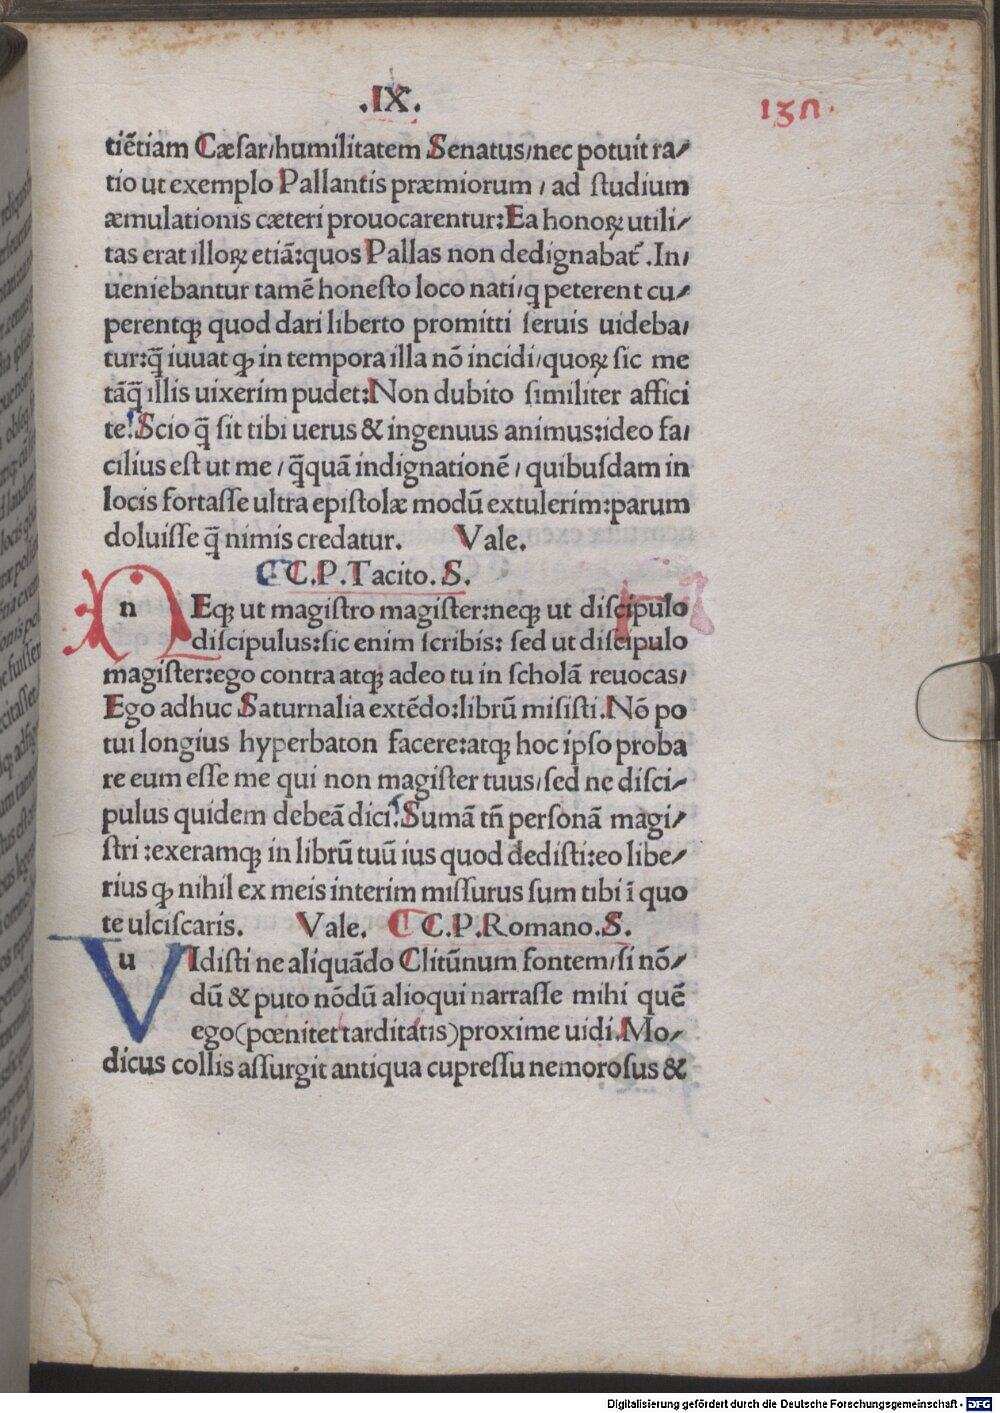 .IX.
137.
tiētiam Cæsar/humilitatem Senatus/nec potuit ra/
tio ut exemplo Pallantis præmiorum / ad ſtudium
æmulationis cæteri prouocarentur:Ea honoꝝ utili/
tas erat illoꝝ etiā:quos Pallas non dedignabat᷑ .In/
ueniebantur tamē honeſto loco nati/q̣ peterent cu/
perentqꝫ quod dari liberto promitti ſeruis uideba/
tur:q̄ iuuat ꝙ in tempora illa nō incidi/quoꝝ ſic me
tāq̄ illis uixerim pudet:Non dubito ſimiliter affici
te!Scio q̄ ſit tibi uerus & ingenuus animus:ideo fa/
cilius eſt ut me / q̄quā indignationē / quibuſdam in
locis fortaſſe ultra epiſtolæ modū extulerim:parum
doluiſſe q̄ nimis credatur. Vale.
C.P.Tacito.S.
n Eqꝫ ut magiſtro magiſter:neqꝫ ut diſcipulo
diſcipulus:ſic enim ſcribis: ſed ut diſcipulo
magiſter:ego contra atqꝫ adeo tu in ſcholā reuocas/
Ego adhuc Saturnalia extēdo:librū miſiſti.Nō po
tui longius hyperbaton facere:atqꝫ hoc ipſo proba
re eum eſſe me qui non magiſter tuus/ſed ne diſci/
pulus quidem debeā dici!Sumā tn̄ perſonā magi/
ſtri :exeramqꝫ in librū tuū ius quod dediſti:eo libe/
rius ꝙ nihil ex meis interim miſſurus ſum tibi ī quo
te ulciſcaris. Vale. C.P.Romano.S.
u Idiſti ne aliquādo Clitūnum fontem/ſi nō/
dū & puto nōdū alioqui narraſſe mihi quē
ego(pœnitet tarditatis)proxime uidi.Mo/
dicus collis aſſurgit antiqua cupreſſu nemoroſus &
Digitalisierung gefördert durch die Deutsche Forschungsgemeinschaft - DFG